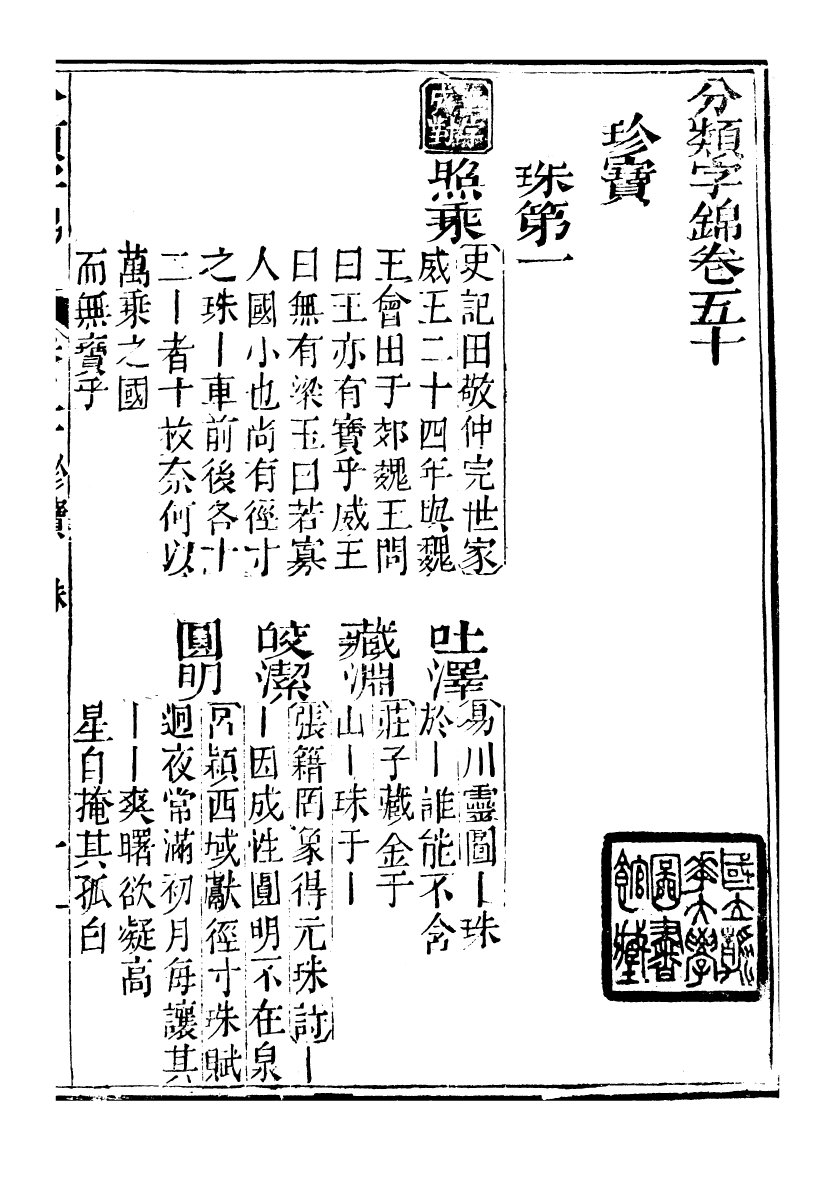 分類字錦卷五十
珍寶
珠第一
成對
照乘
史記田敬仲完世家
威王二十四年與魏
王會田于郊魏王問
曰王亦有寶乎威王
曰無有梁王曰若寡
人國小也尚有徑寸
之珠丨車前後各十
二丨者十枚奈何以
萬乘之國
而無寶乎
吐澤
易川靈圖丨珠
於丨誰能不含
藏淵
莊子藏金于
山丨珠于丨
皎潔
張籍罔象得元珠詩丨
丨因成性圓明不在泉
圓明
呂穎西域獻徑寸珠賦
迥夜常滿初月每讓其
丨丨爽曙欲凝高
星自掩其孤白
國立清華大學圖書館藏